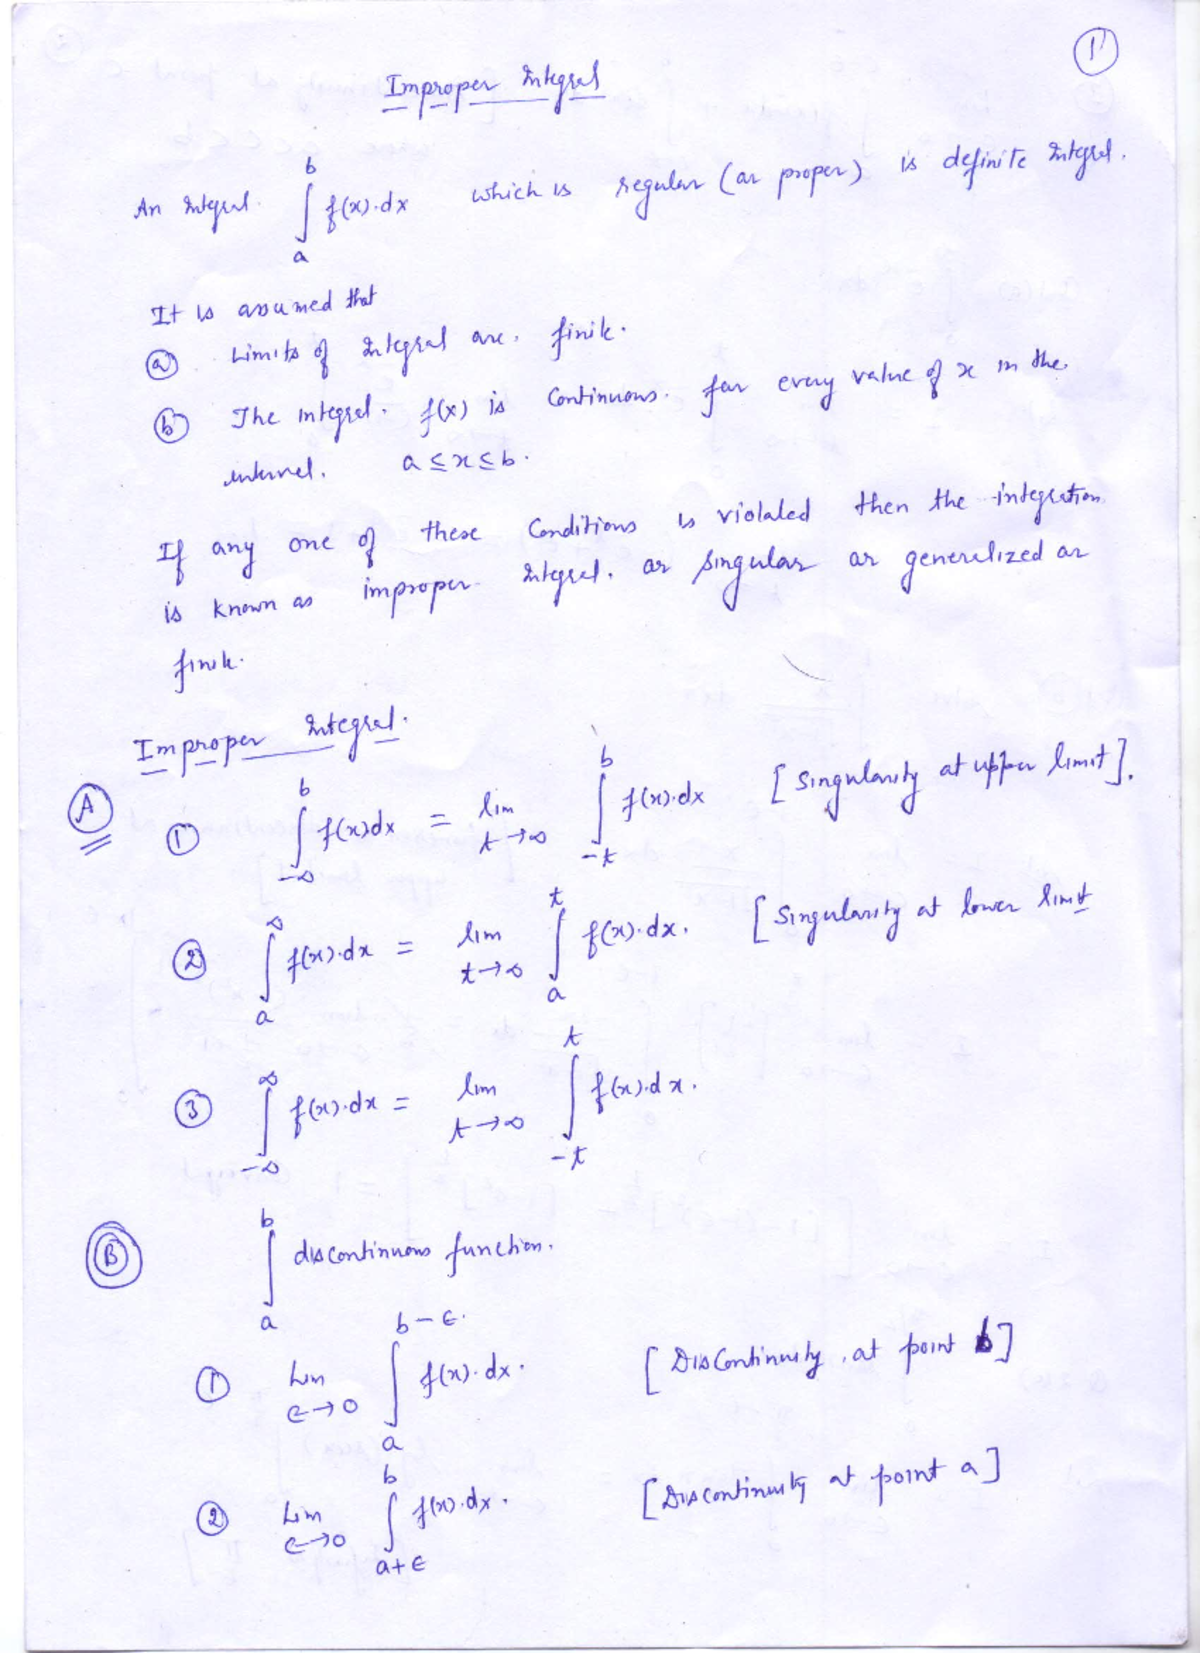 1
Improper Integral
An Integral ∫_a^b f(x).dx which is regular (or proper) is definite Integral.
It is assumed that
(a) Limits of Integral are. finite.
(b) The integral. f(x) is Continuous. for every value of x in the
interval. a ≤ x ≤ b.
If any one of these Conditions is violated then the integration
is known as improper Integral. or singular or generalized or
finite.
Improper Integral.
(A) (1) ∫_{-∞}^b f(x)dx = lim_{t→∞} ∫_{-t}^b f(x).dx [Singularity at upper limit].
(2) ∫_a^∞ f(x).dx = lim_{t→∞} ∫_a^t f(x).dx. [Singularity at lower limit
(3) ∫_{-∞}^∞ f(x).dx = lim_{t→∞} ∫_{-t}^t f(x).dx.
(B) ∫_a^b discontinuous function.
(1) Lim_{ϵ→0} ∫_a^{b-ϵ} f(x).dx. [Discontinuity at point b]
(2) Lim_{ϵ→0} ∫_{a+ϵ}^b f(x).dx. [Discontinuity at point a]